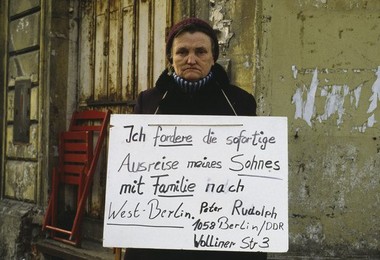 Ich fordere die sofortige
Ausreise meines Sohnes
mit Familie nach
West-Berlin. Peter Rudolph
1058 Berlin/DDR
Wolliner Str 3